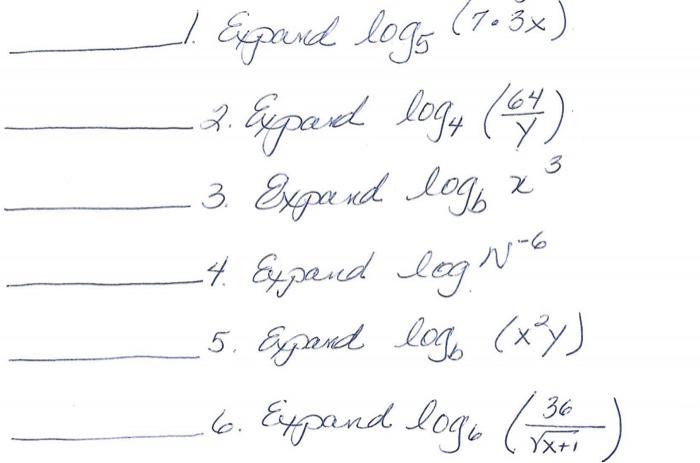 1. Expand log₅ (7·3x)
2. Expand log₄ (64/y)
3. Expand log_b x³
4. Expand log N⁻⁶
5. Expand log_b (x²y)
6. Expand log₆ (36/√(x+1))